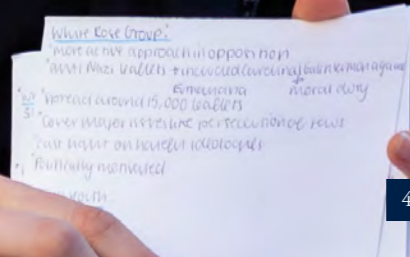 White Rose Group:
"more active approach in opposition
"anti Nazi leaflets + included cardinal
moral duty
"spread around 15,000 leaflets
"cover major issues like persecution of Jews
"cast light on hateful ideologies
"Politically motivated
youth
4